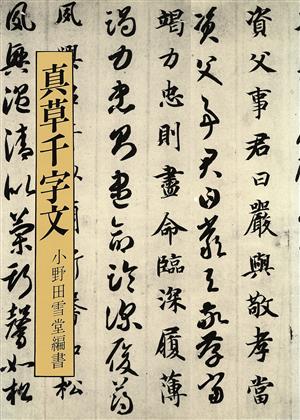 資父事君曰嚴與敬孝當
資父事君曰嚴與敬孝當
竭力忠則盡命臨深履薄
竭力忠則盡命臨深履薄
夙興松
夙興温清似蘭斯馨如松
真草千字文
小野田雪堂編書